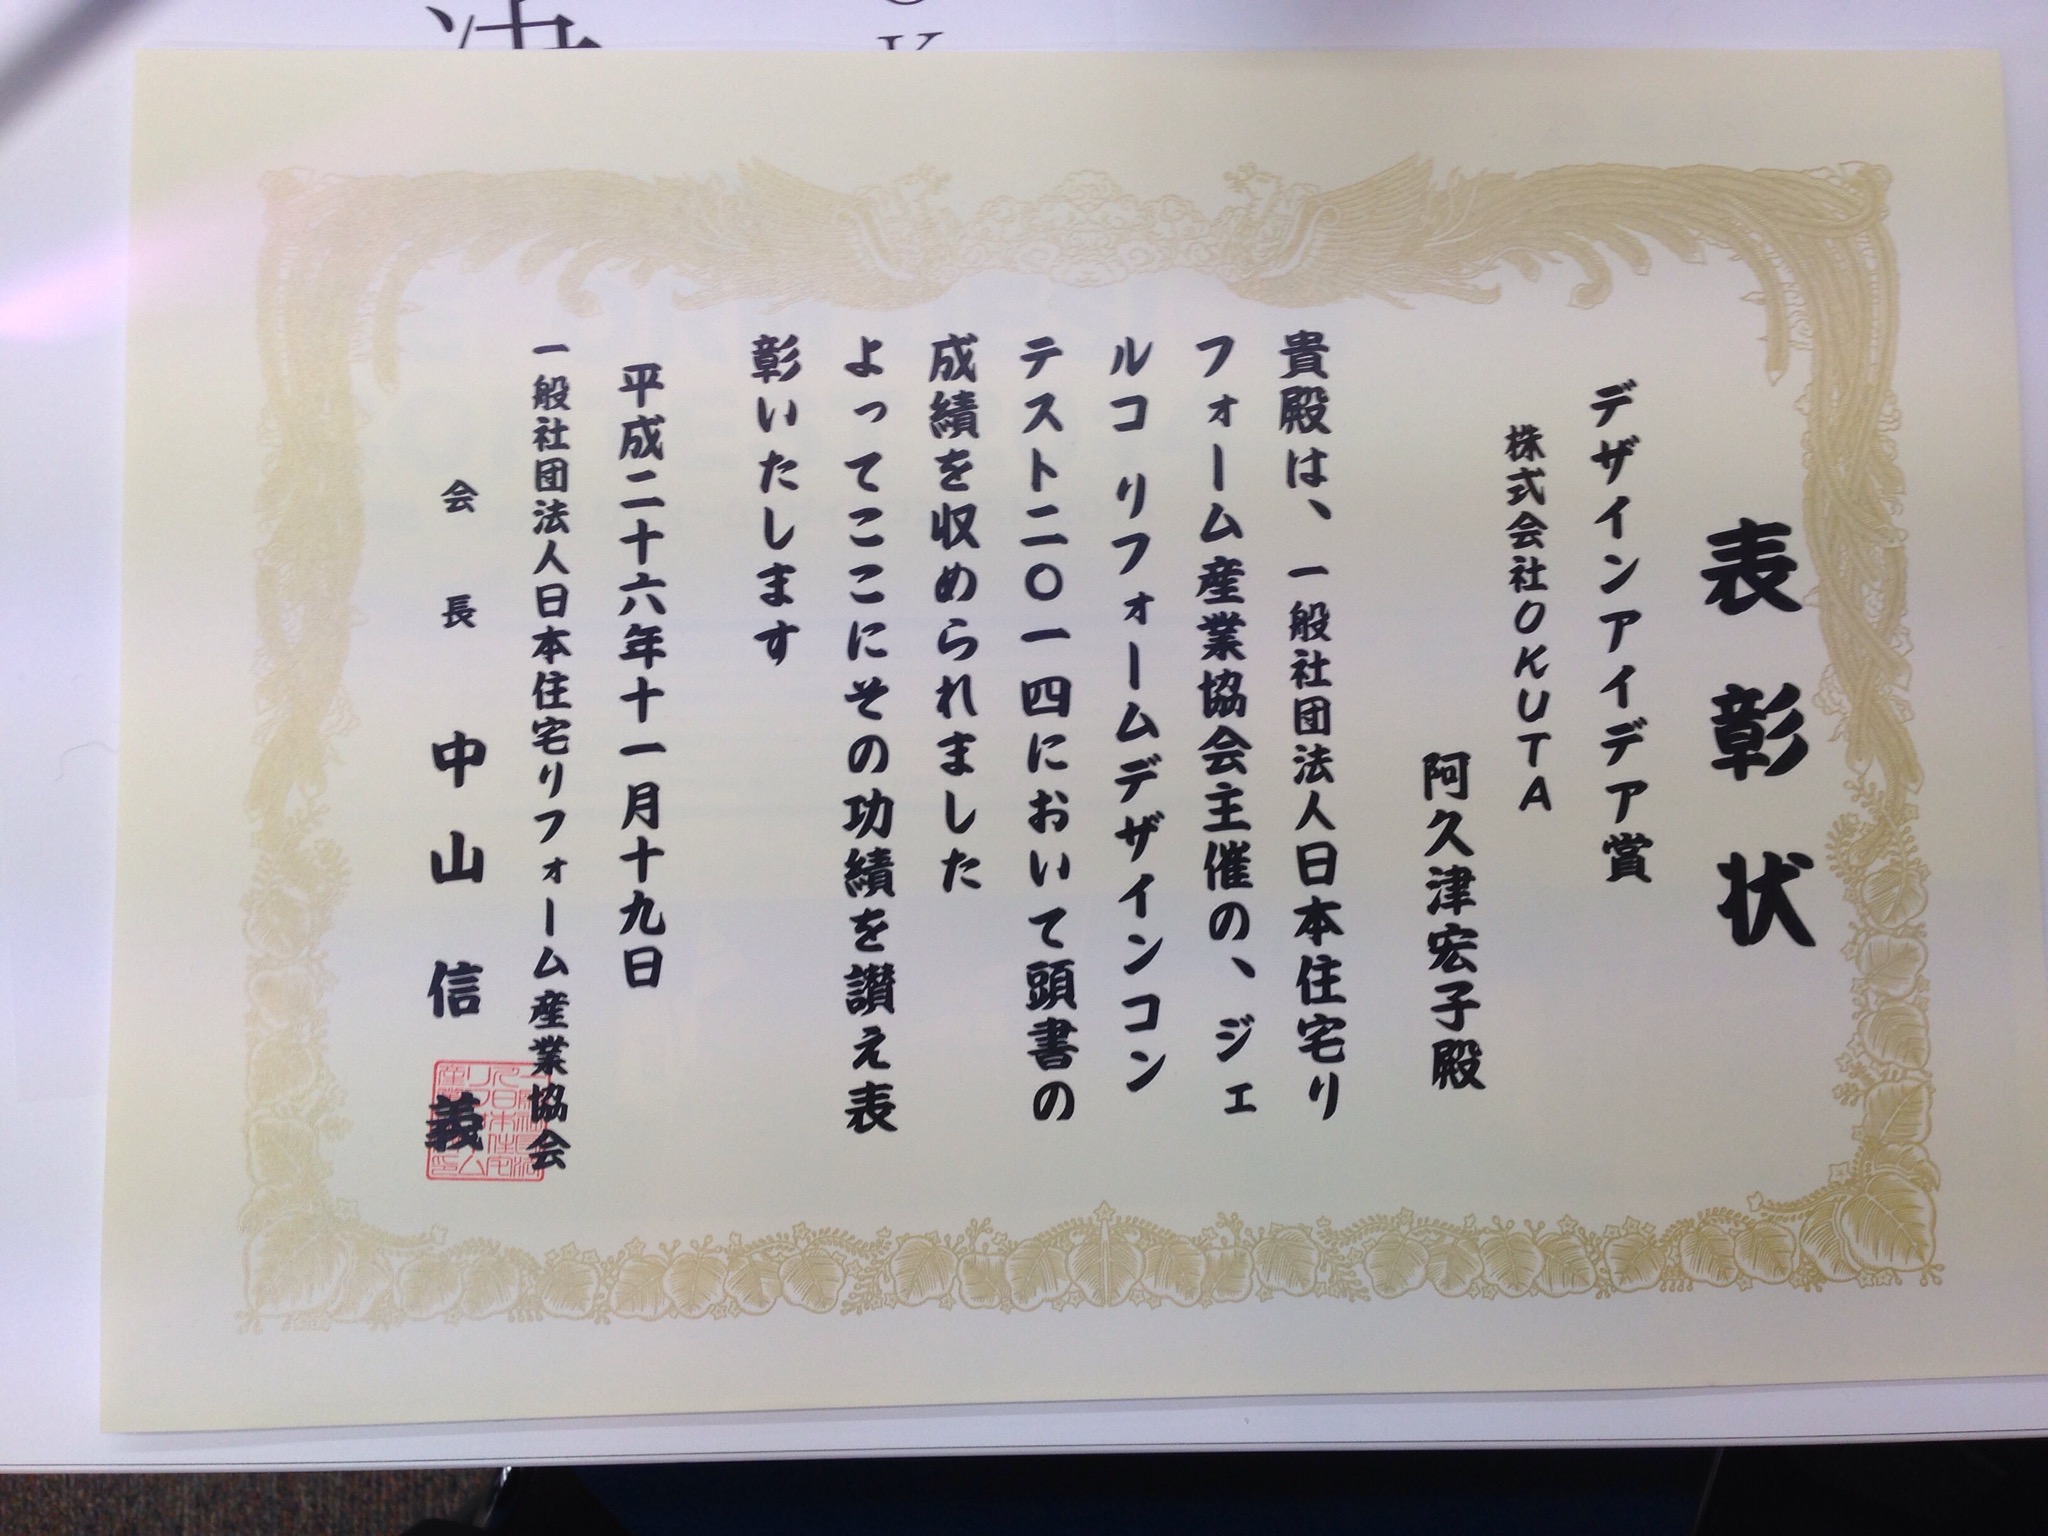 表彰状
デザインアイデア賞
株式会社OKUTA
阿久津宏子殿
貴殿は、一般社団法人日本住宅リ
フォーム産業協会主催の、ジェ
ルコ リフォームデザインコン
テスト二〇一四において頭書の
成績を収められました
よってここにその功績を讃え表
彰いたします
平成二十六年十一月十九日
一般社団法人日本住宅リフォーム産業協会
会長 中山信義